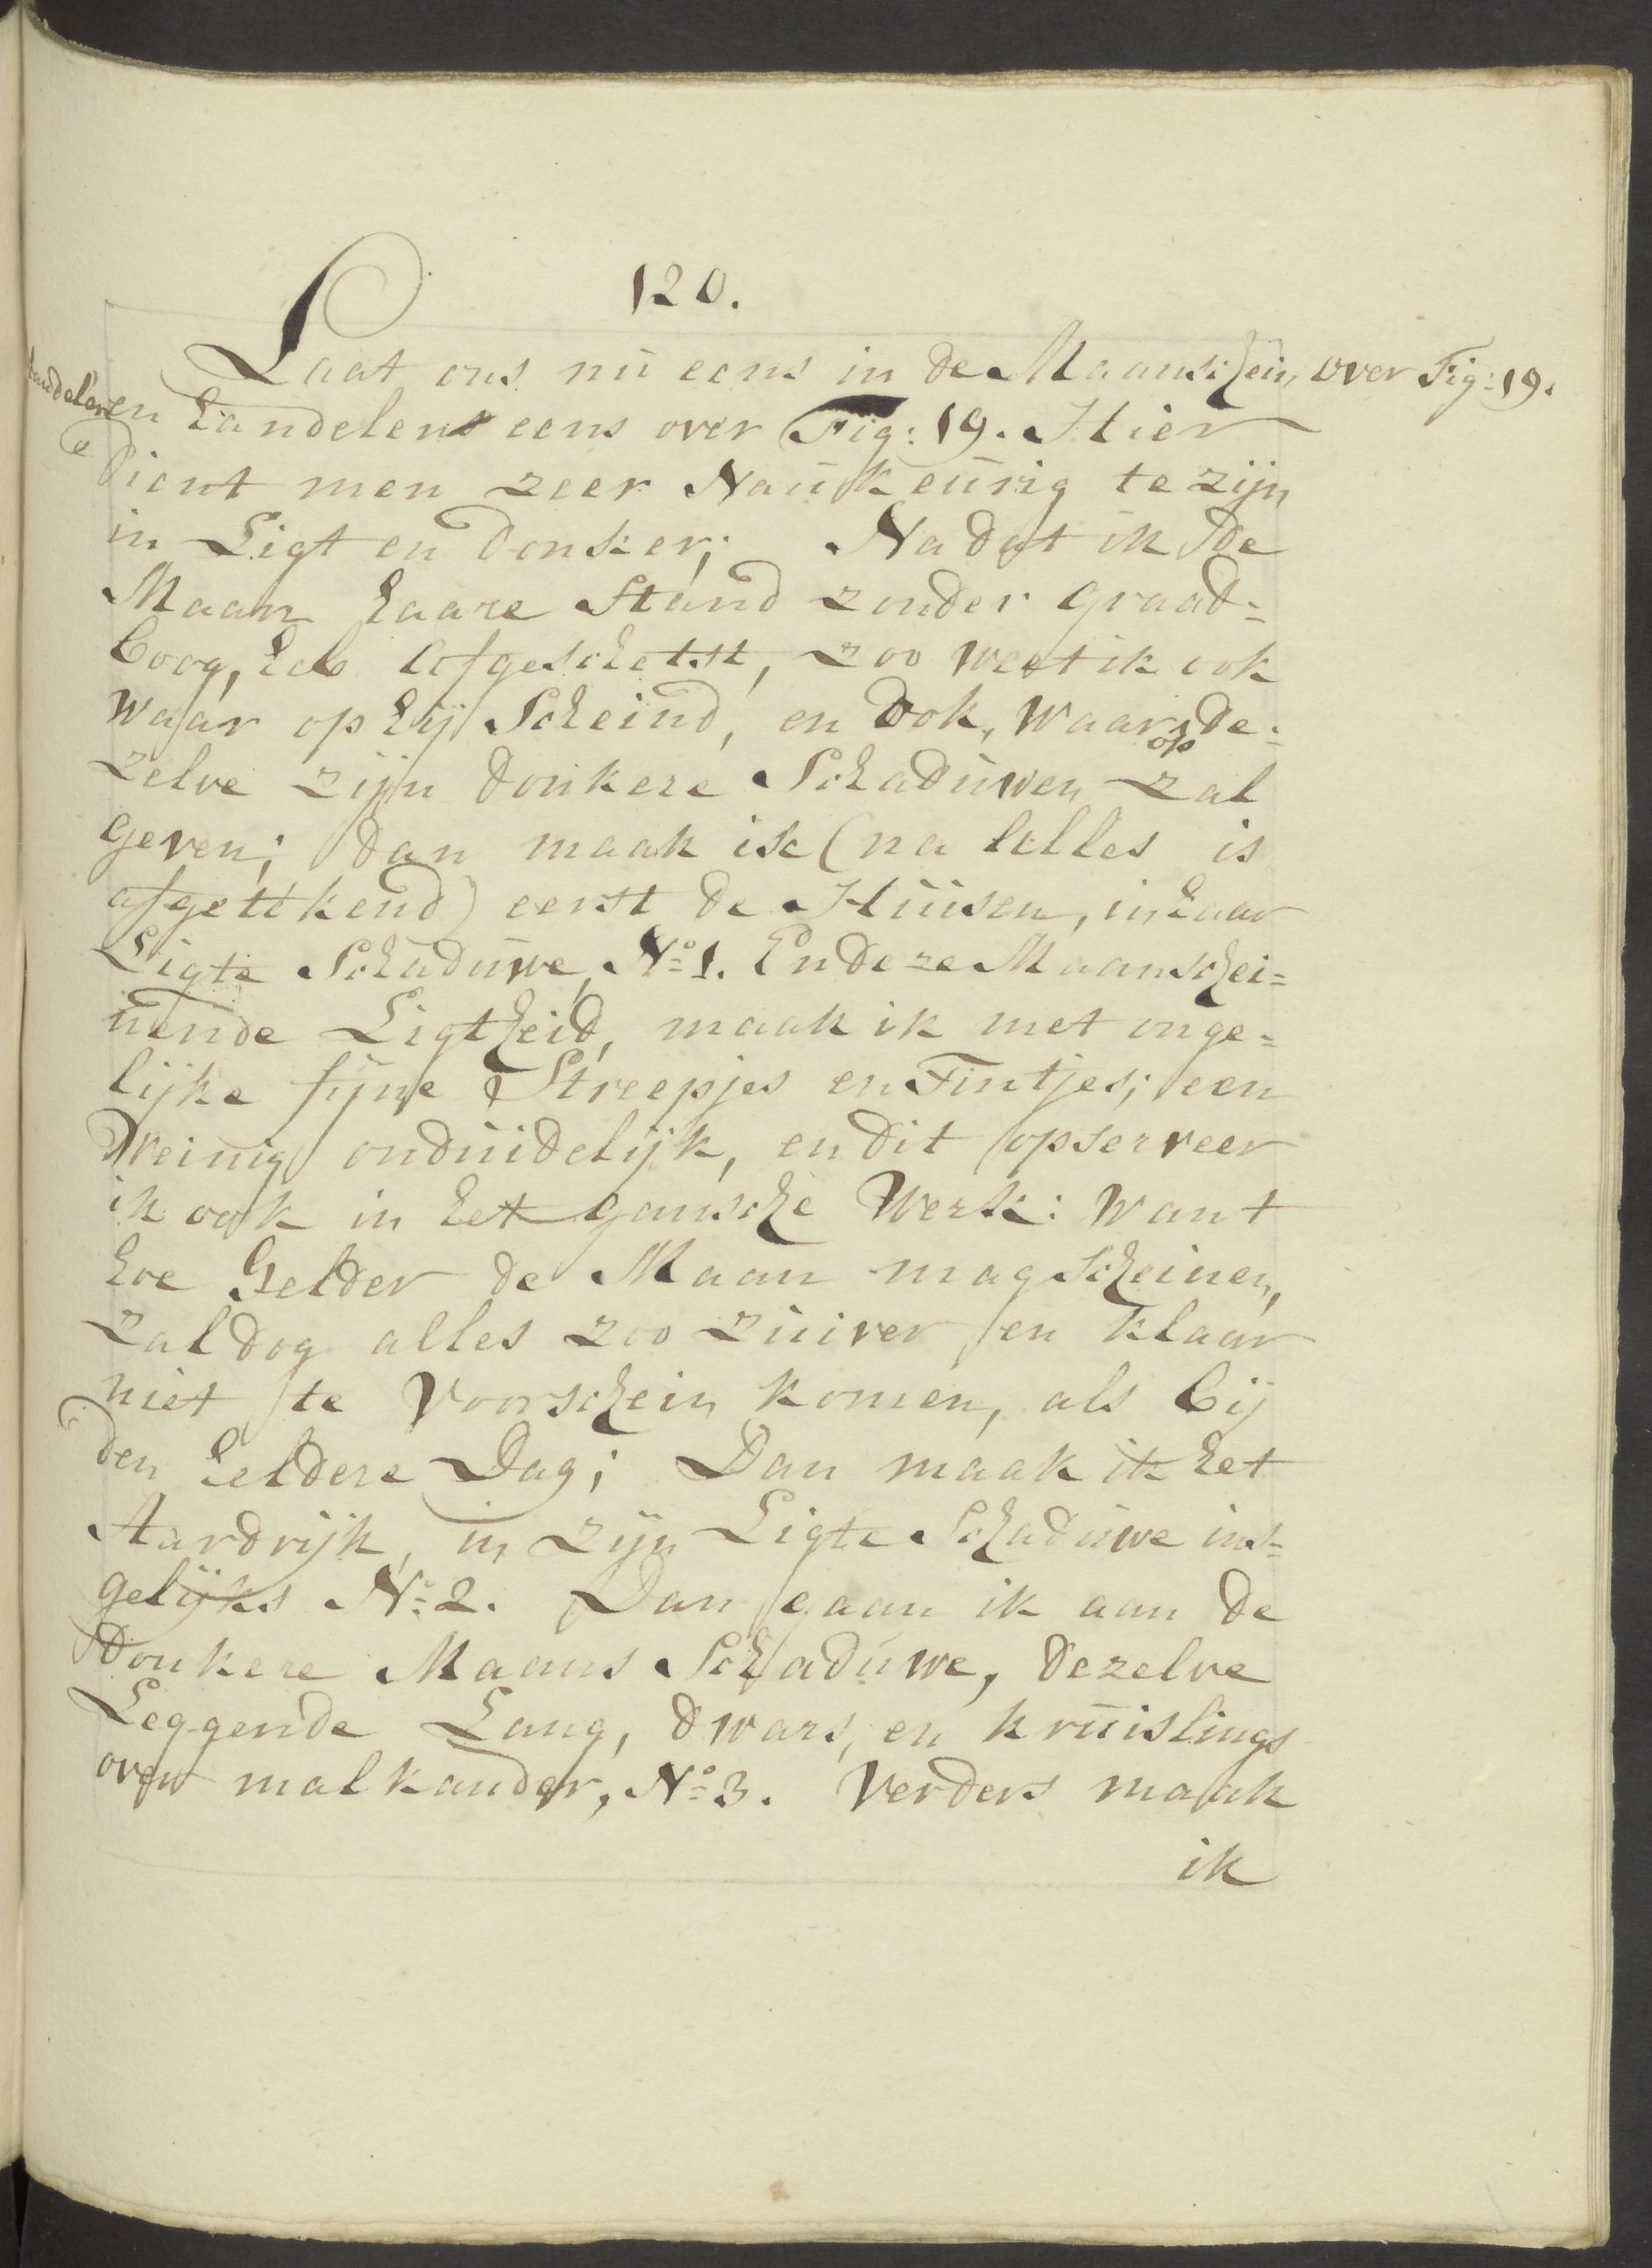 120.
Laat ons nū eens in de Maanschein over Fig: 19.
handelen
en handelen eens over Fig: 19. Hier
dient men zeer Naūkeūrig te zijn
in Ligt en donker; Nadat ik de
Maan haare Stand zonder graad=
boog, heb afgeschetst, zoo weet ik ook
waar op hij Scheind, en ook, waar op de=
zelve zijn donkere Schadūwen zal
geven; dan maak ik (na alles is
afgetekend) eerst de Hūisen, in haar
Ligte Schadūwe, No 1. En deze Maanschei=
nende Ligtheid, maak ik met onge=
lijke fijne Streepjes en Tintjes; een
Weinig ondūidelijk, en dit opserveer
ik ook in het gansche Werk: Want
hoe Helder de Maan mag Scheinen,
zal dog alles zoo zūiver en klaar
niet te Voorschein komen, als bij
den heldere Dag; Dan maak ik het
Aardrijk, in zijn Ligte Schadūwe ins=
gelijks No 2. Dan gaan ik aan de
donkere Maans Schadūwe, dezelve
Leggende Lang, dwars, en krūislings
over malkander, No 3. Verders maak
ik